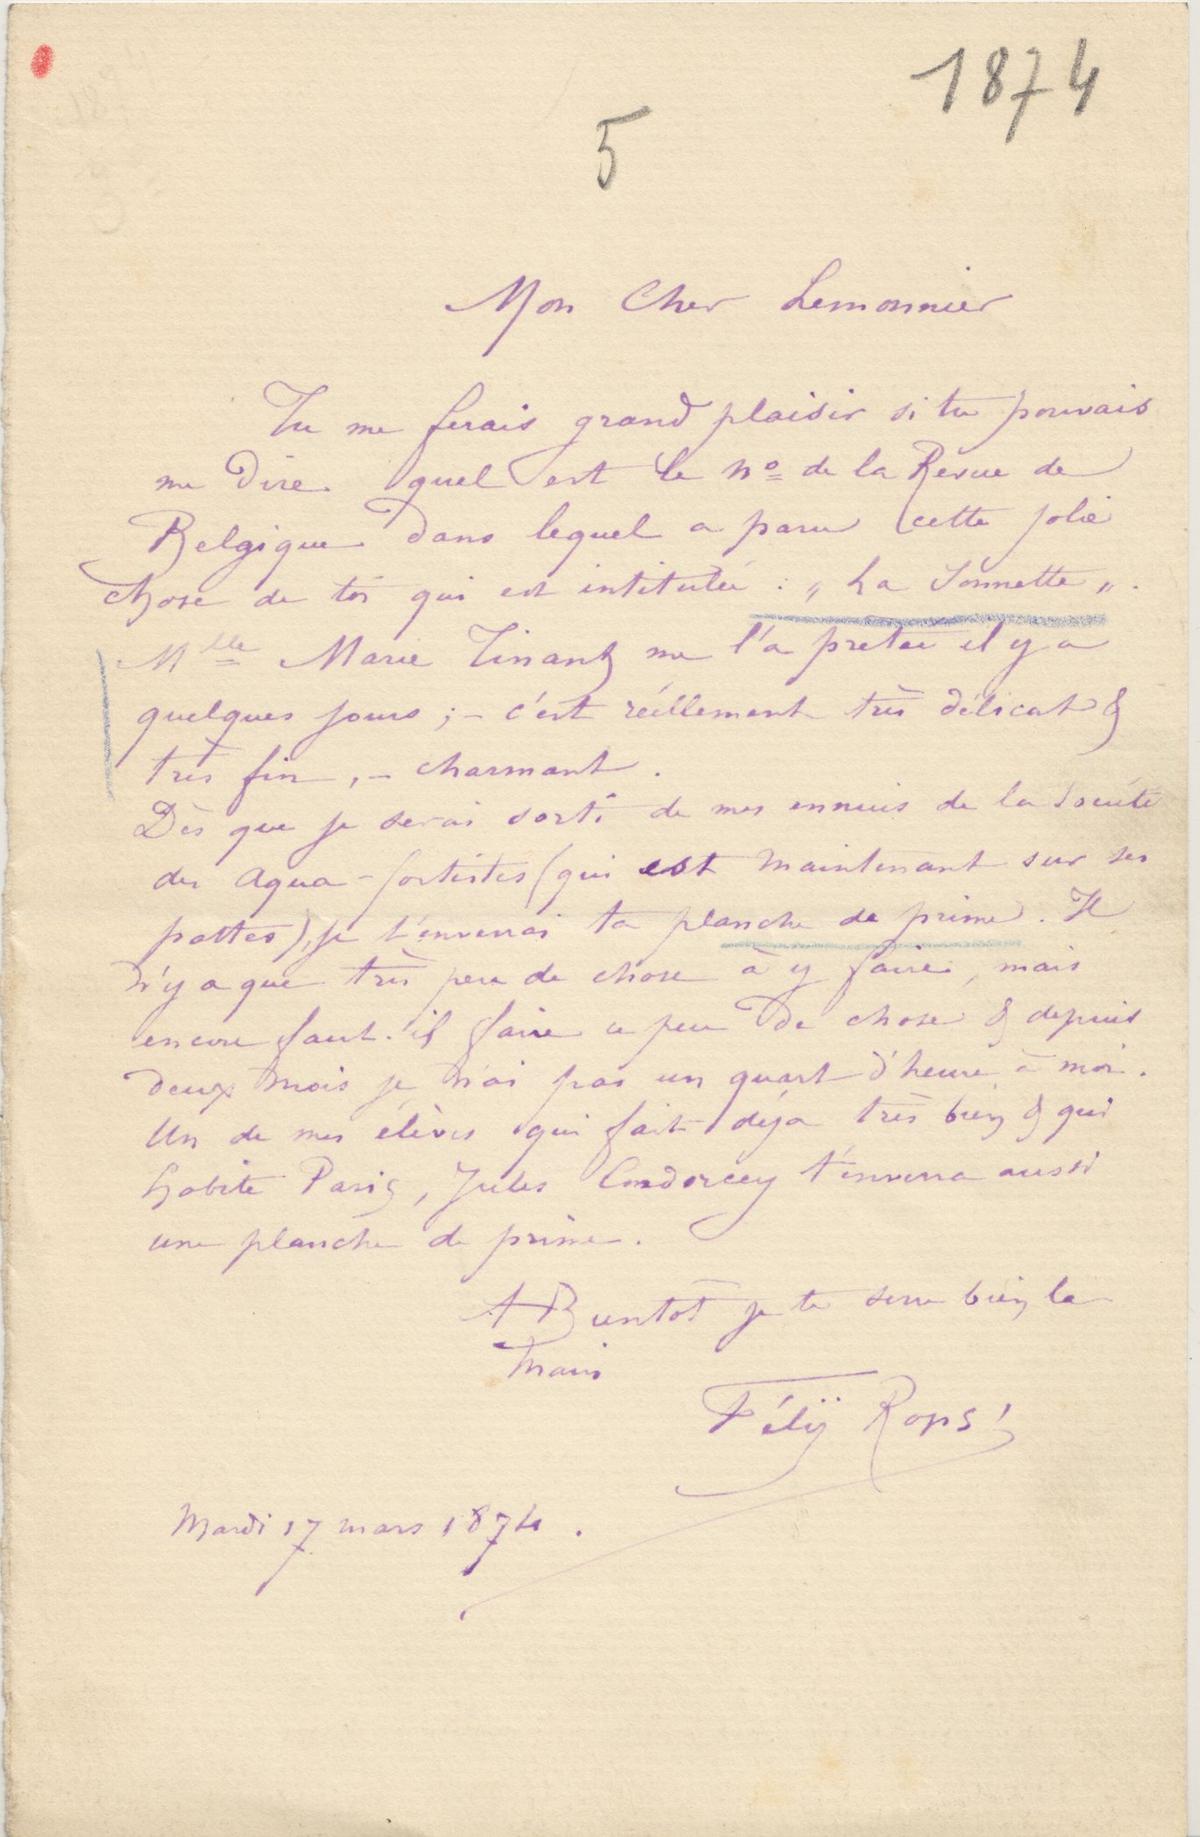 1874
5
Mon Cher Lemonnier
Tu me ferais grand plaisir si tu pouvais
me dire quel est le No de la Revue de
Belgique dans lequel a paru cette jolie
chose de toi qui est intitulée : „ La Sonnette „ .
Mlle Marie Tinant me l'a pretée il y a
quelques jours ; – c'est réellement très délicat &
très fin , – charmant .
Dès que je serai sorti de mes ennuis de la Société
des Aqua-fortistes (qui est maintenant sur ses
pattes), je t'enverrai ta planche de prime . Il
n'y a que très peu de chose à y faire , mais
encore faut-il faire ce peu de chose & depuis
deux mois je n'ai pas un quart d'heure à moi .
Un de mes élèves qui fait déja très bien & qui
habite Paris , Jules Condorcey t'enverra aussi
une planche de prime .
A Bientôt je te serre bien la
main
Félÿ Rops
Mardi 17 mars 1874 .